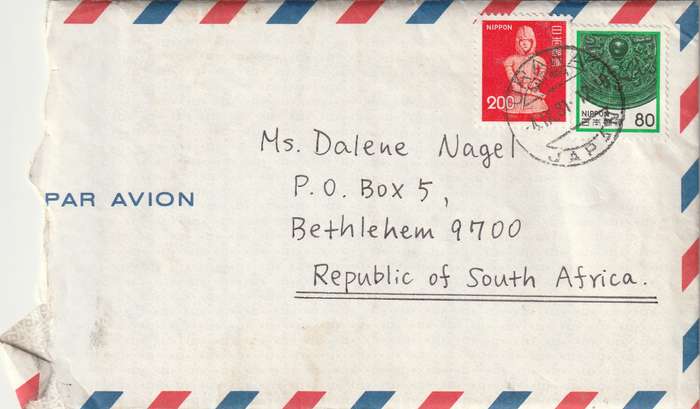 NIPPON
日本郵便
200
NIPPON
日本郵便
80
JAPAN
Ms. Dalene Nagel
P.O. Box 5,
Bethlehem 9700
Republic of South Africa.
PAR AVION